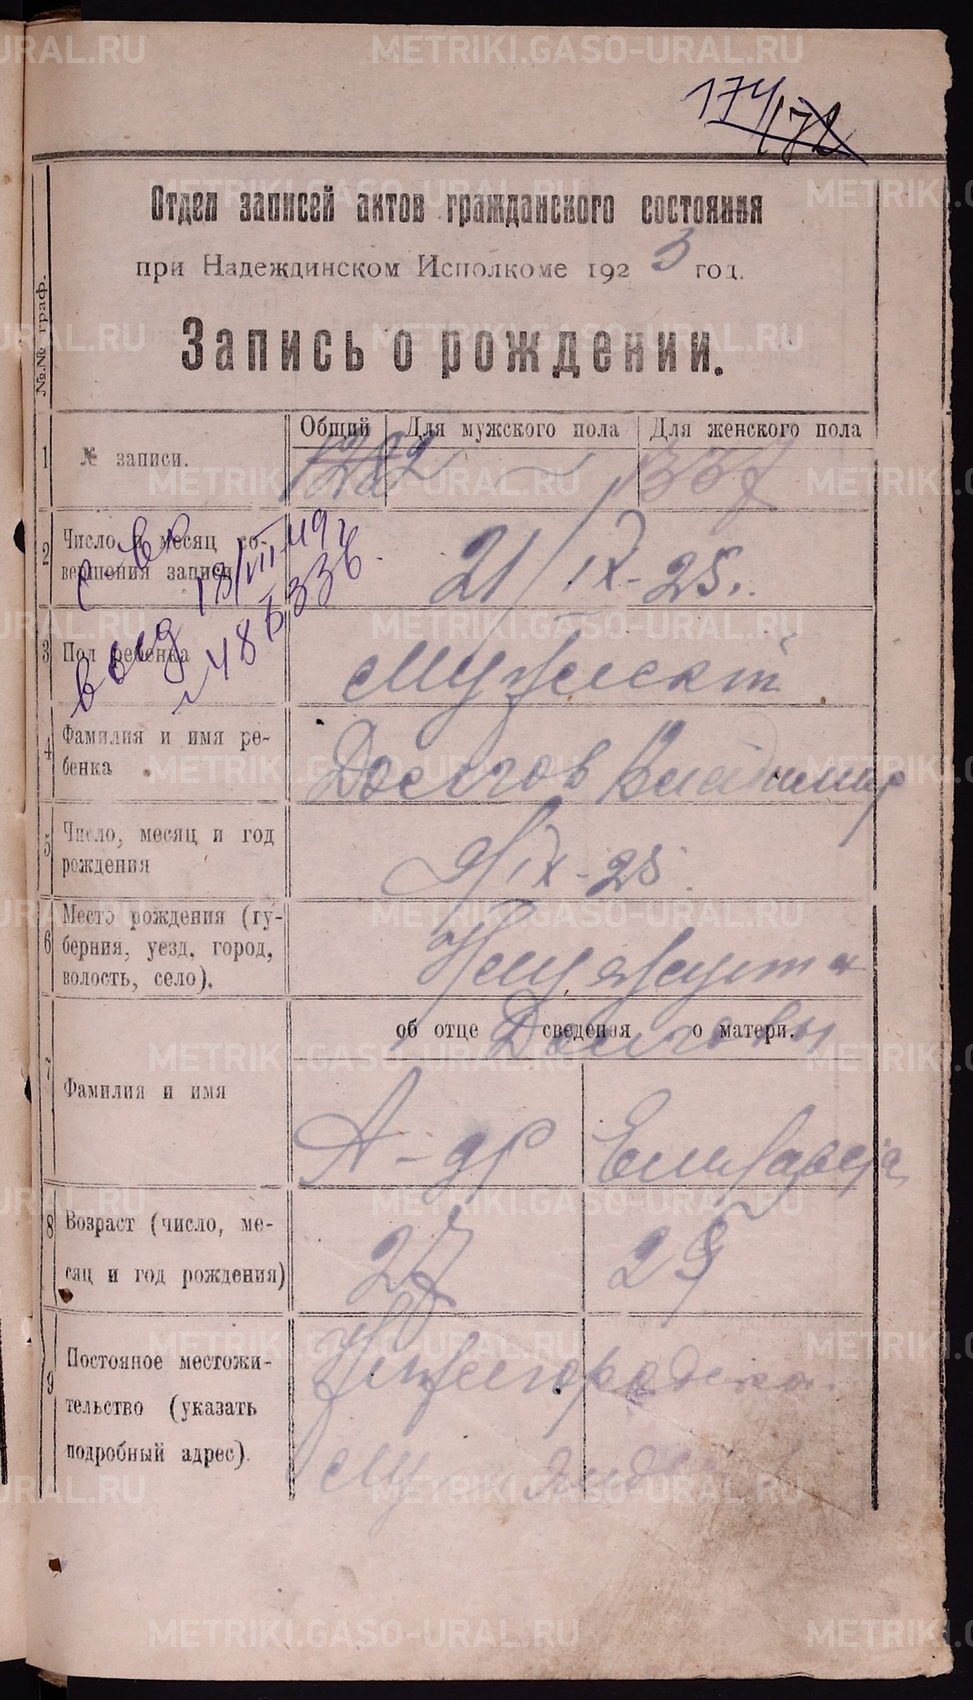 METRIKI.GASO-URAL.RU
174/178
Отдел записей актов гражданского состояния
при Надеждинском Исполкоме 1923 год.
Запись о рождении.
№№ граф.
Общий Для мужского пола Для женского пола
1 № записи. 1282 337
2 Число и месяц со-
вершения записи 21/IX-25.
3 Пол ребенка Мужской
4 Фамилия и имя ре-
бенка Долгов Владимир
5 Число, месяц и год
рождения /IX-25.
6 Место рождения (гу-
берния, уезд, город,
волость, село).
Долговы
об отце сведения о матери.
7 Фамилия и имя А-др Елизавета
8 Возраст (число, ме-
сяц и год рождения) 27 25
9 Постояное местожи-
тельство (указать
подробный адрес).
Нижегородская